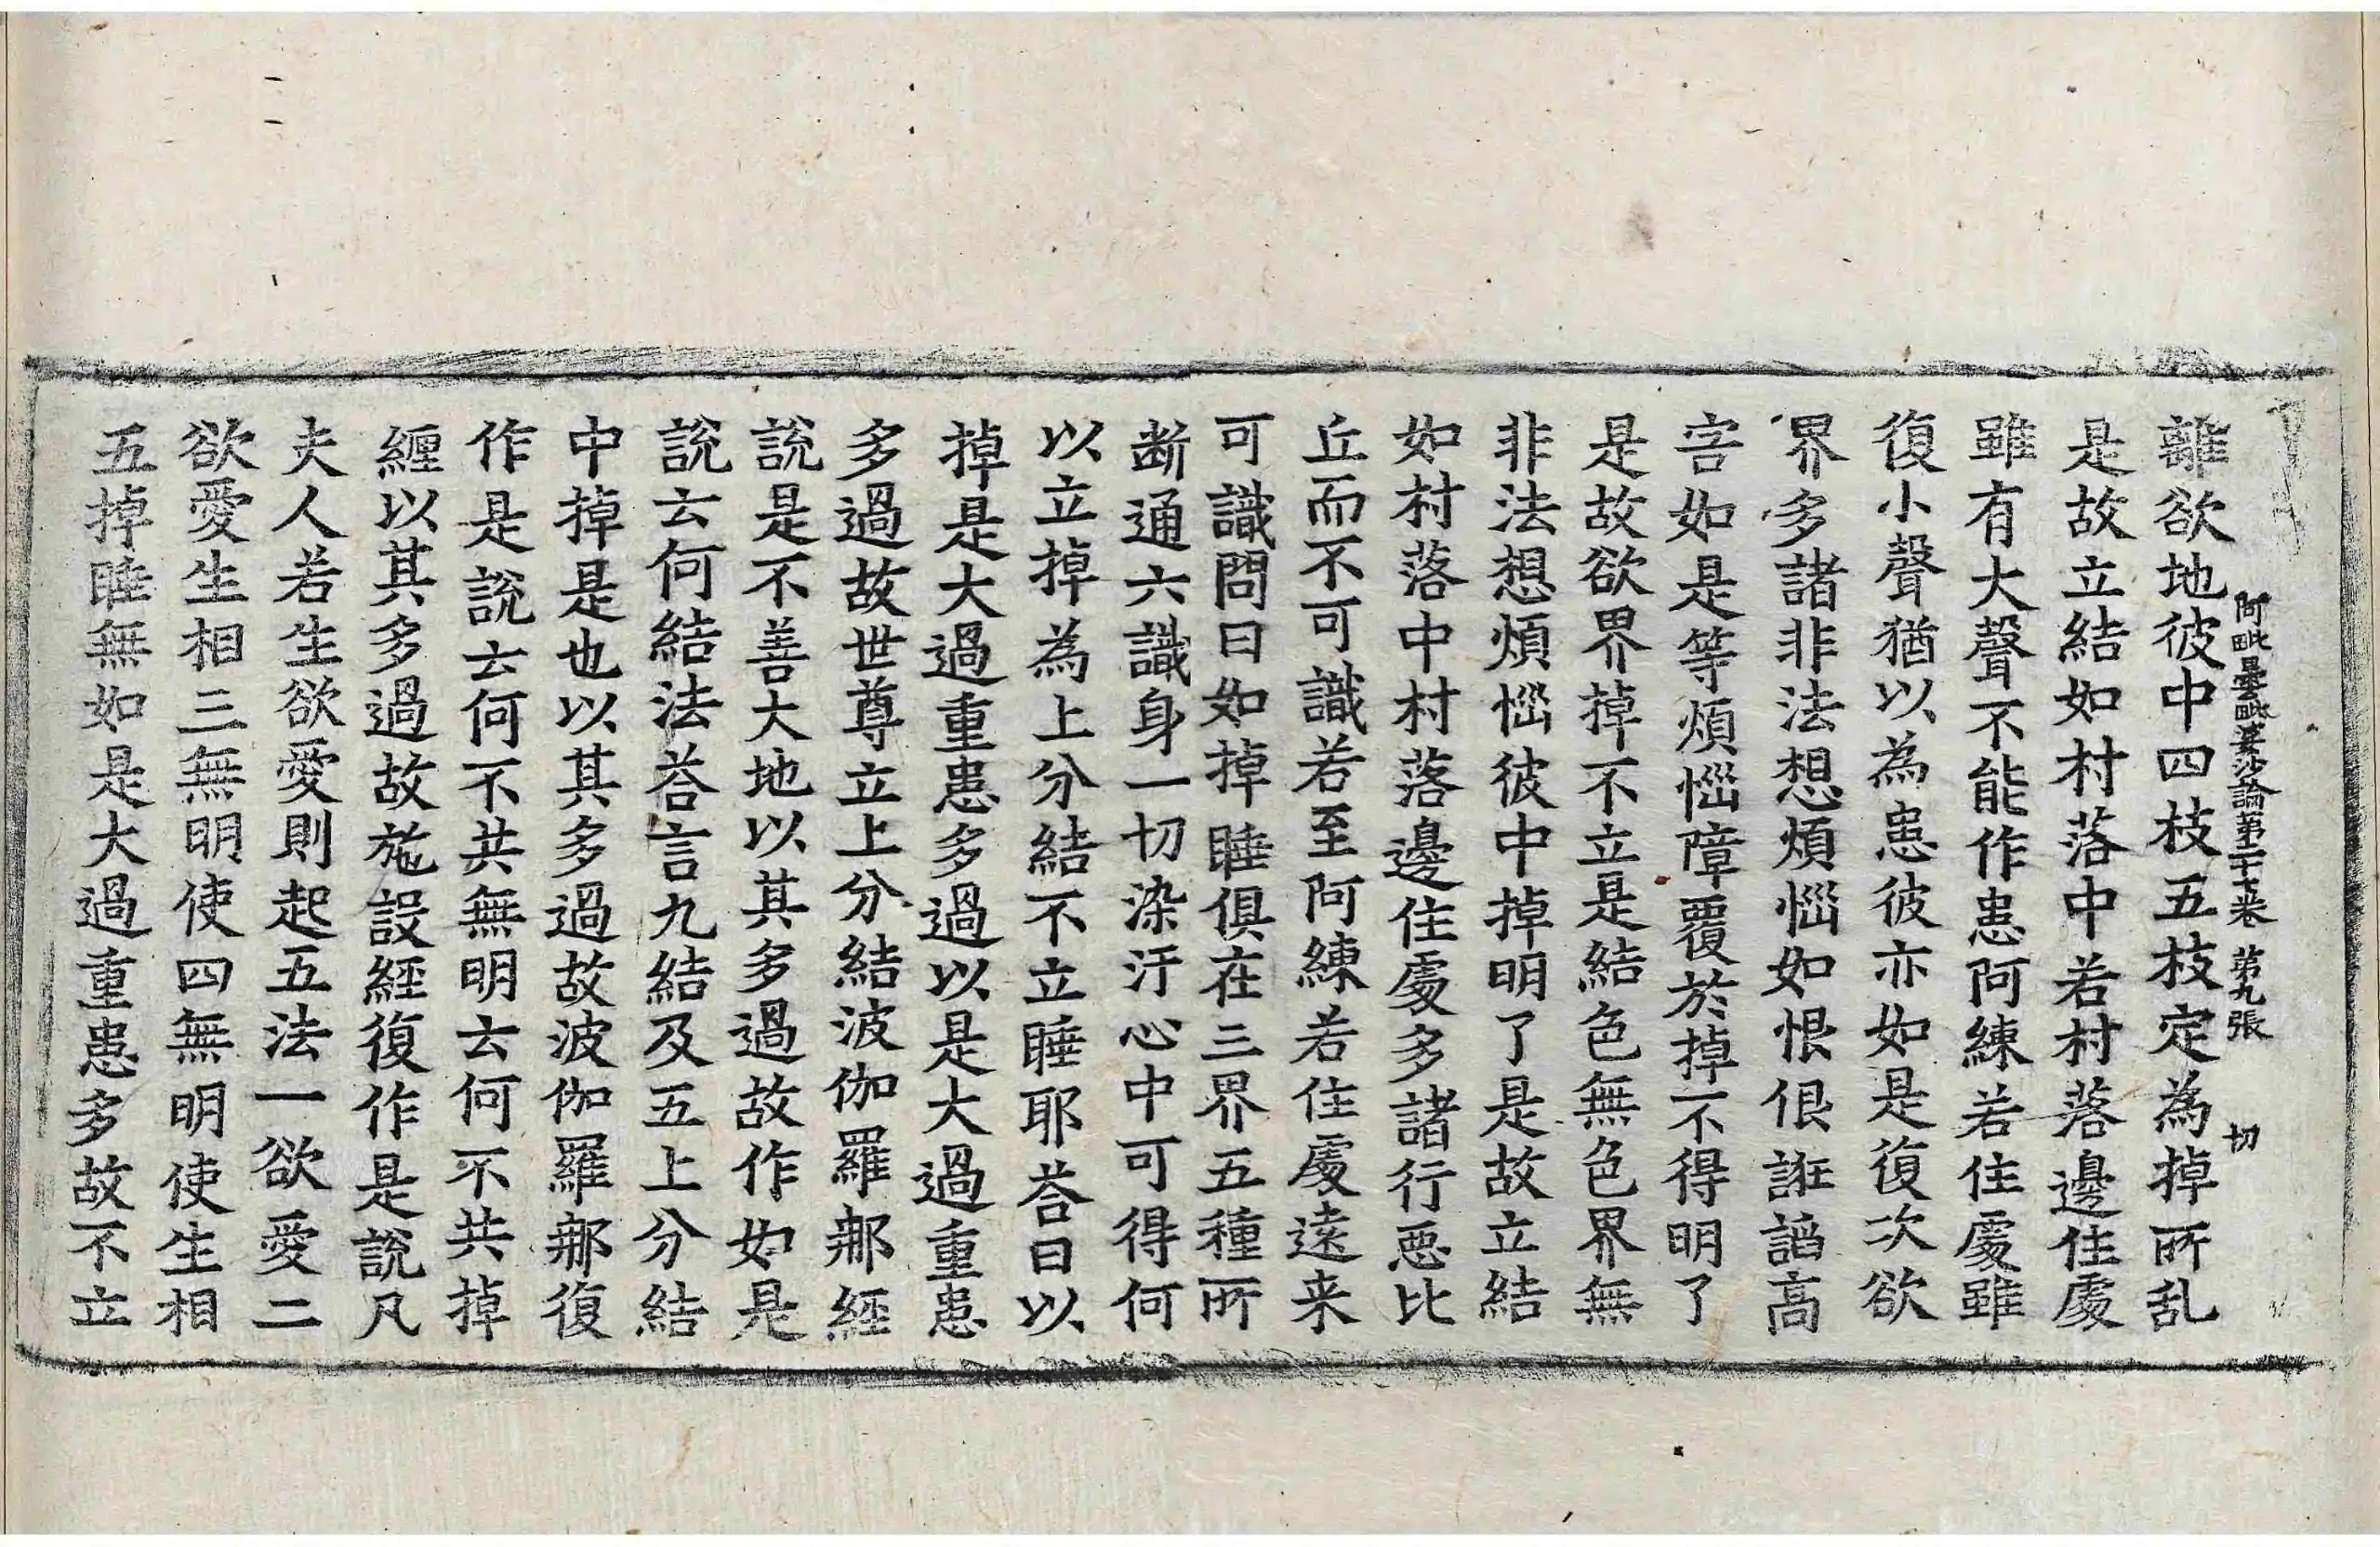 阿毗曇毗婆沙論第二十七卷 第九張 切
離欲地彼中四枝五枝定為掉所乱
是故立結如村落中若村落邊住處
雖有大聲不能作患阿練若住處雖
復小聲猶以為患彼亦如是復次欲
界多諸非法想煩惱如恨佷誑諂高
害如是等煩惱障覆於掉不得明了
是故欲界掉不立是結色無色界無
非法想煩惱彼中掉明了是故立結
如村落中村落邊住處多諸行惡比
丘而不可識若至阿練若住處遠来
可識問曰如掉睡俱在三界五種所
断通六識身一切染汙心中可得何
以立掉為上分結不立睡耶荅曰以
掉是大過重患多過以是大過重患
多過故世尊立上分結波伽羅那經
說是不善大地以其多過故作如是
說云何結法荅言九結及五上分結
中掉是也以其多過故波伽羅那復
作是說云何不共無明云何不共掉
纏以其多過故施設經復作是說凡
夫人若生欲愛則起五法一欲愛二
欲愛生相三無明使四無明使生相
五掉睡無如是大過重患多故不立